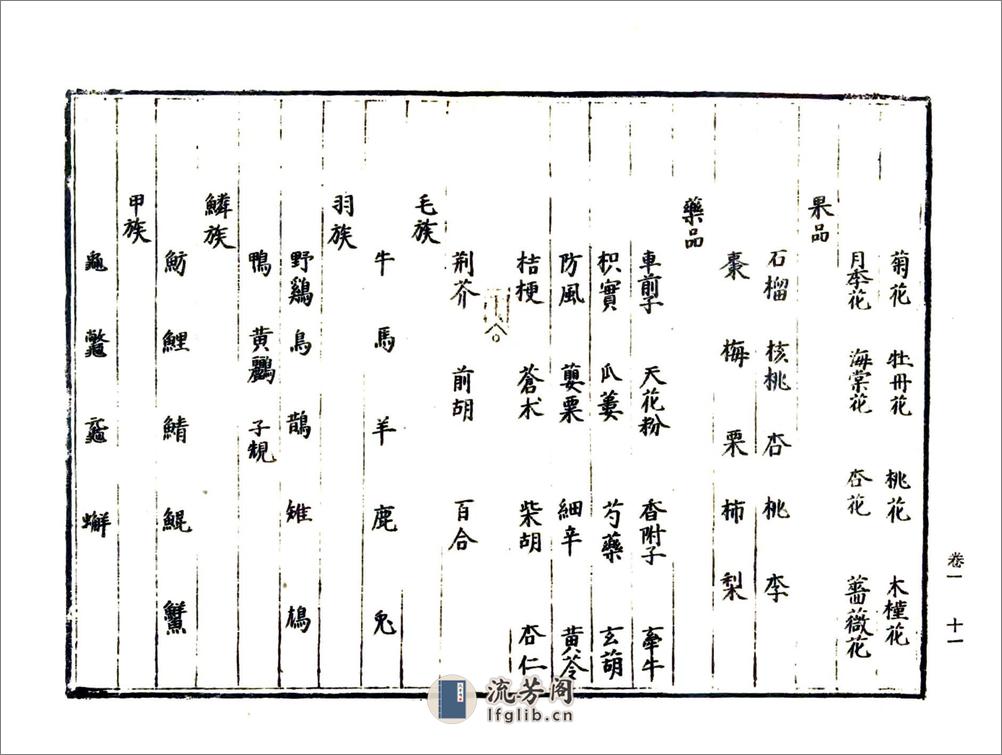 菊花 牡丹花 桃花 木槿花
月季花 海棠花 杏花 薔薇花
果品
石榴 核桃 杏 桃 李
棗 梅 栗 柿 梨
藥品
車前子 天花粉 香附子 牽牛
枳實 瓜蔞 芍藥 玄葫
防風 罌粟 細辛 黃苓
桔梗 蒼朮 柴胡 杏仁
荆芥 前胡 百合
毛族
牛 馬 羊 鹿 兎
羽族
野鷄 鳥 鵲 雉 鴆
鴨 黃鸝 子規
鱗族
魴 鯉 鯖 鯤
甲族
龜 鱉 蟹
卷一 十一
流芳阁
lfglib.cn